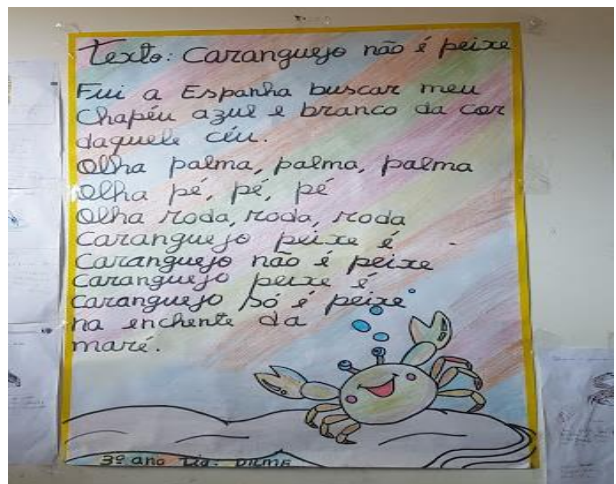 Texto: Caranguejo não é peixe
Fui a Espanha buscar meu
Chapéu azul e branco da cor
daquele céu.
Olha palma, palma, palma
Olha pé, pé, pé
Olha roda, roda, roda
Caranguejo peixe é
Caranguejo não é peixe
Caranguejo peixe é
Caranguejo só é peixe
na enchente da
maré.
3º ano Tia: